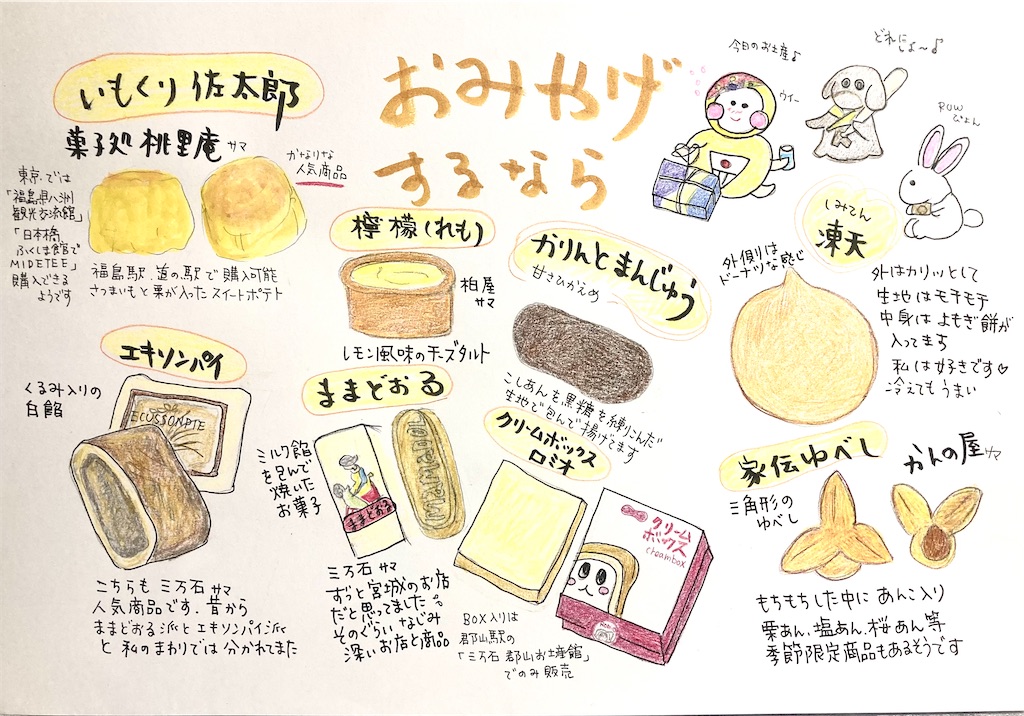 おみやげ
するなら
今日のお土産♪
ウィー
どれに
しよ〜♪
ROW
ぴょん
いもくり佐太郎
菓子処 桃里庵 サマ
かなりな
人気商品
東京では
「福島県八洲
観光交流館」
「日本橋
ふくしま館で
MIDETEE」
購入できる
ようです
福島駅、道の駅で購入可能
さつまいもと栗が入ったスイートポテト
檸檬(れも)
柏屋
サマ
レモン風味のチーズタルト
かりんとまんじゅう
甘さひかえめ
こしあんを黒糖を練りこんだ
生地で包んで揚げてます
しみてん
凍天
外側りは
ドーナツな感じ
外はカリッとして
生地はモチモチ
中身はよもぎ餅が
入ってます
私は好きです♡
冷えてもうまい
エキソンパイ
くるみ入りの
白餡
ECUSSONPIE
こちらも 三万石 サマ
人気商品です。昔から
ままどおる派とエキソンパイ派
と 私のまわりでは 分かれてまた
ままどおる
ミルク餡
を包んで
焼いた
お菓子
ままどおる
三万石 サマ
ずっと宮城のお店
だと思ってました。
そのぐらいなじみ
深いお店と商品
クリームボックス
ロミオ
クリーム
ボックス
creambox
BOX入りは
郡山駅の
「三万石 郡山お土産館」
でのみ 販売
家伝ゆべし
かんの屋 サマ
三角形の
ゆべし
もちもちした中に あんこ入り
栗あん、塩あん、桜あん等
季節限定商品もあるそうです